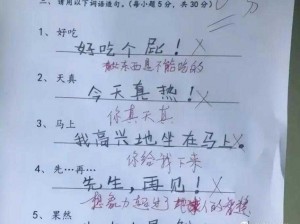 三、请用以下词语造句。(每小题5分，共30分)
1、好吃
好吃个屁！ ×
东西是不能吃的
2、天真
今天真热！ ×
你真天真
3、马上
我高兴地坐在马上。 ×
你给我下来
4、先…再…
先生，再见！ ×
想象力超过了地球人的智慧
5、果然